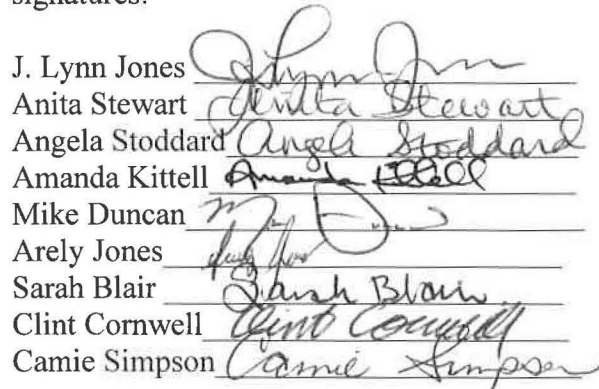 signatures:
J. Lynn Jones J Lynn Jones
Anita Stewart Anita Stewart
Angela Stoddard Angela Stoddard
Amanda Kittell Amanda Kittell
Mike Duncan
Arely Jones Arely Jones
Sarah Blair Sarah Blair
Clint Cornwell Clint Cornwell
Camie Simpson Camie Simpson